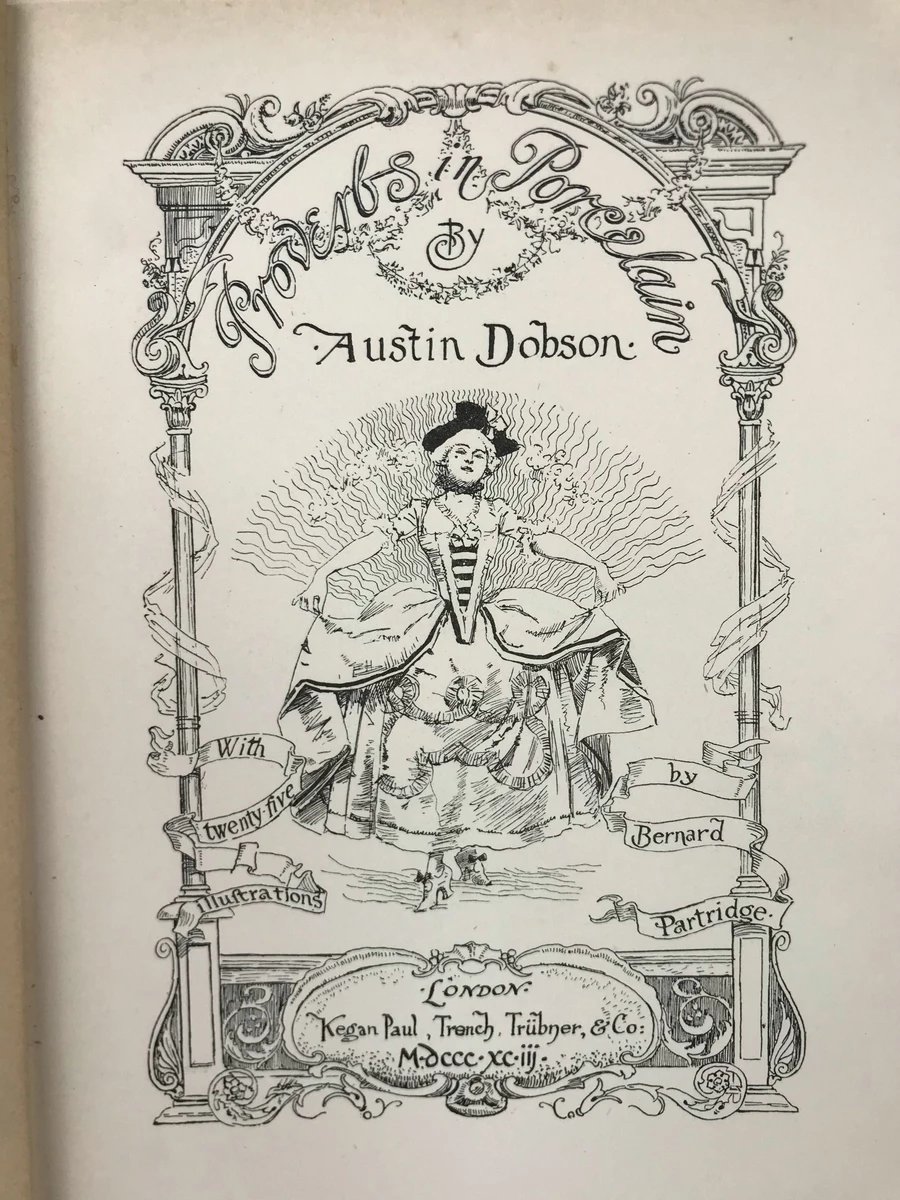 Proverbs in Porcelain
By
·Austin Dobson·
With
twenty-five
illustrations
by
Bernard
Partridge·
·LONDON·
Kegan Paul, Trench, Trübner, & Co:
M·dccc·xc·iij·